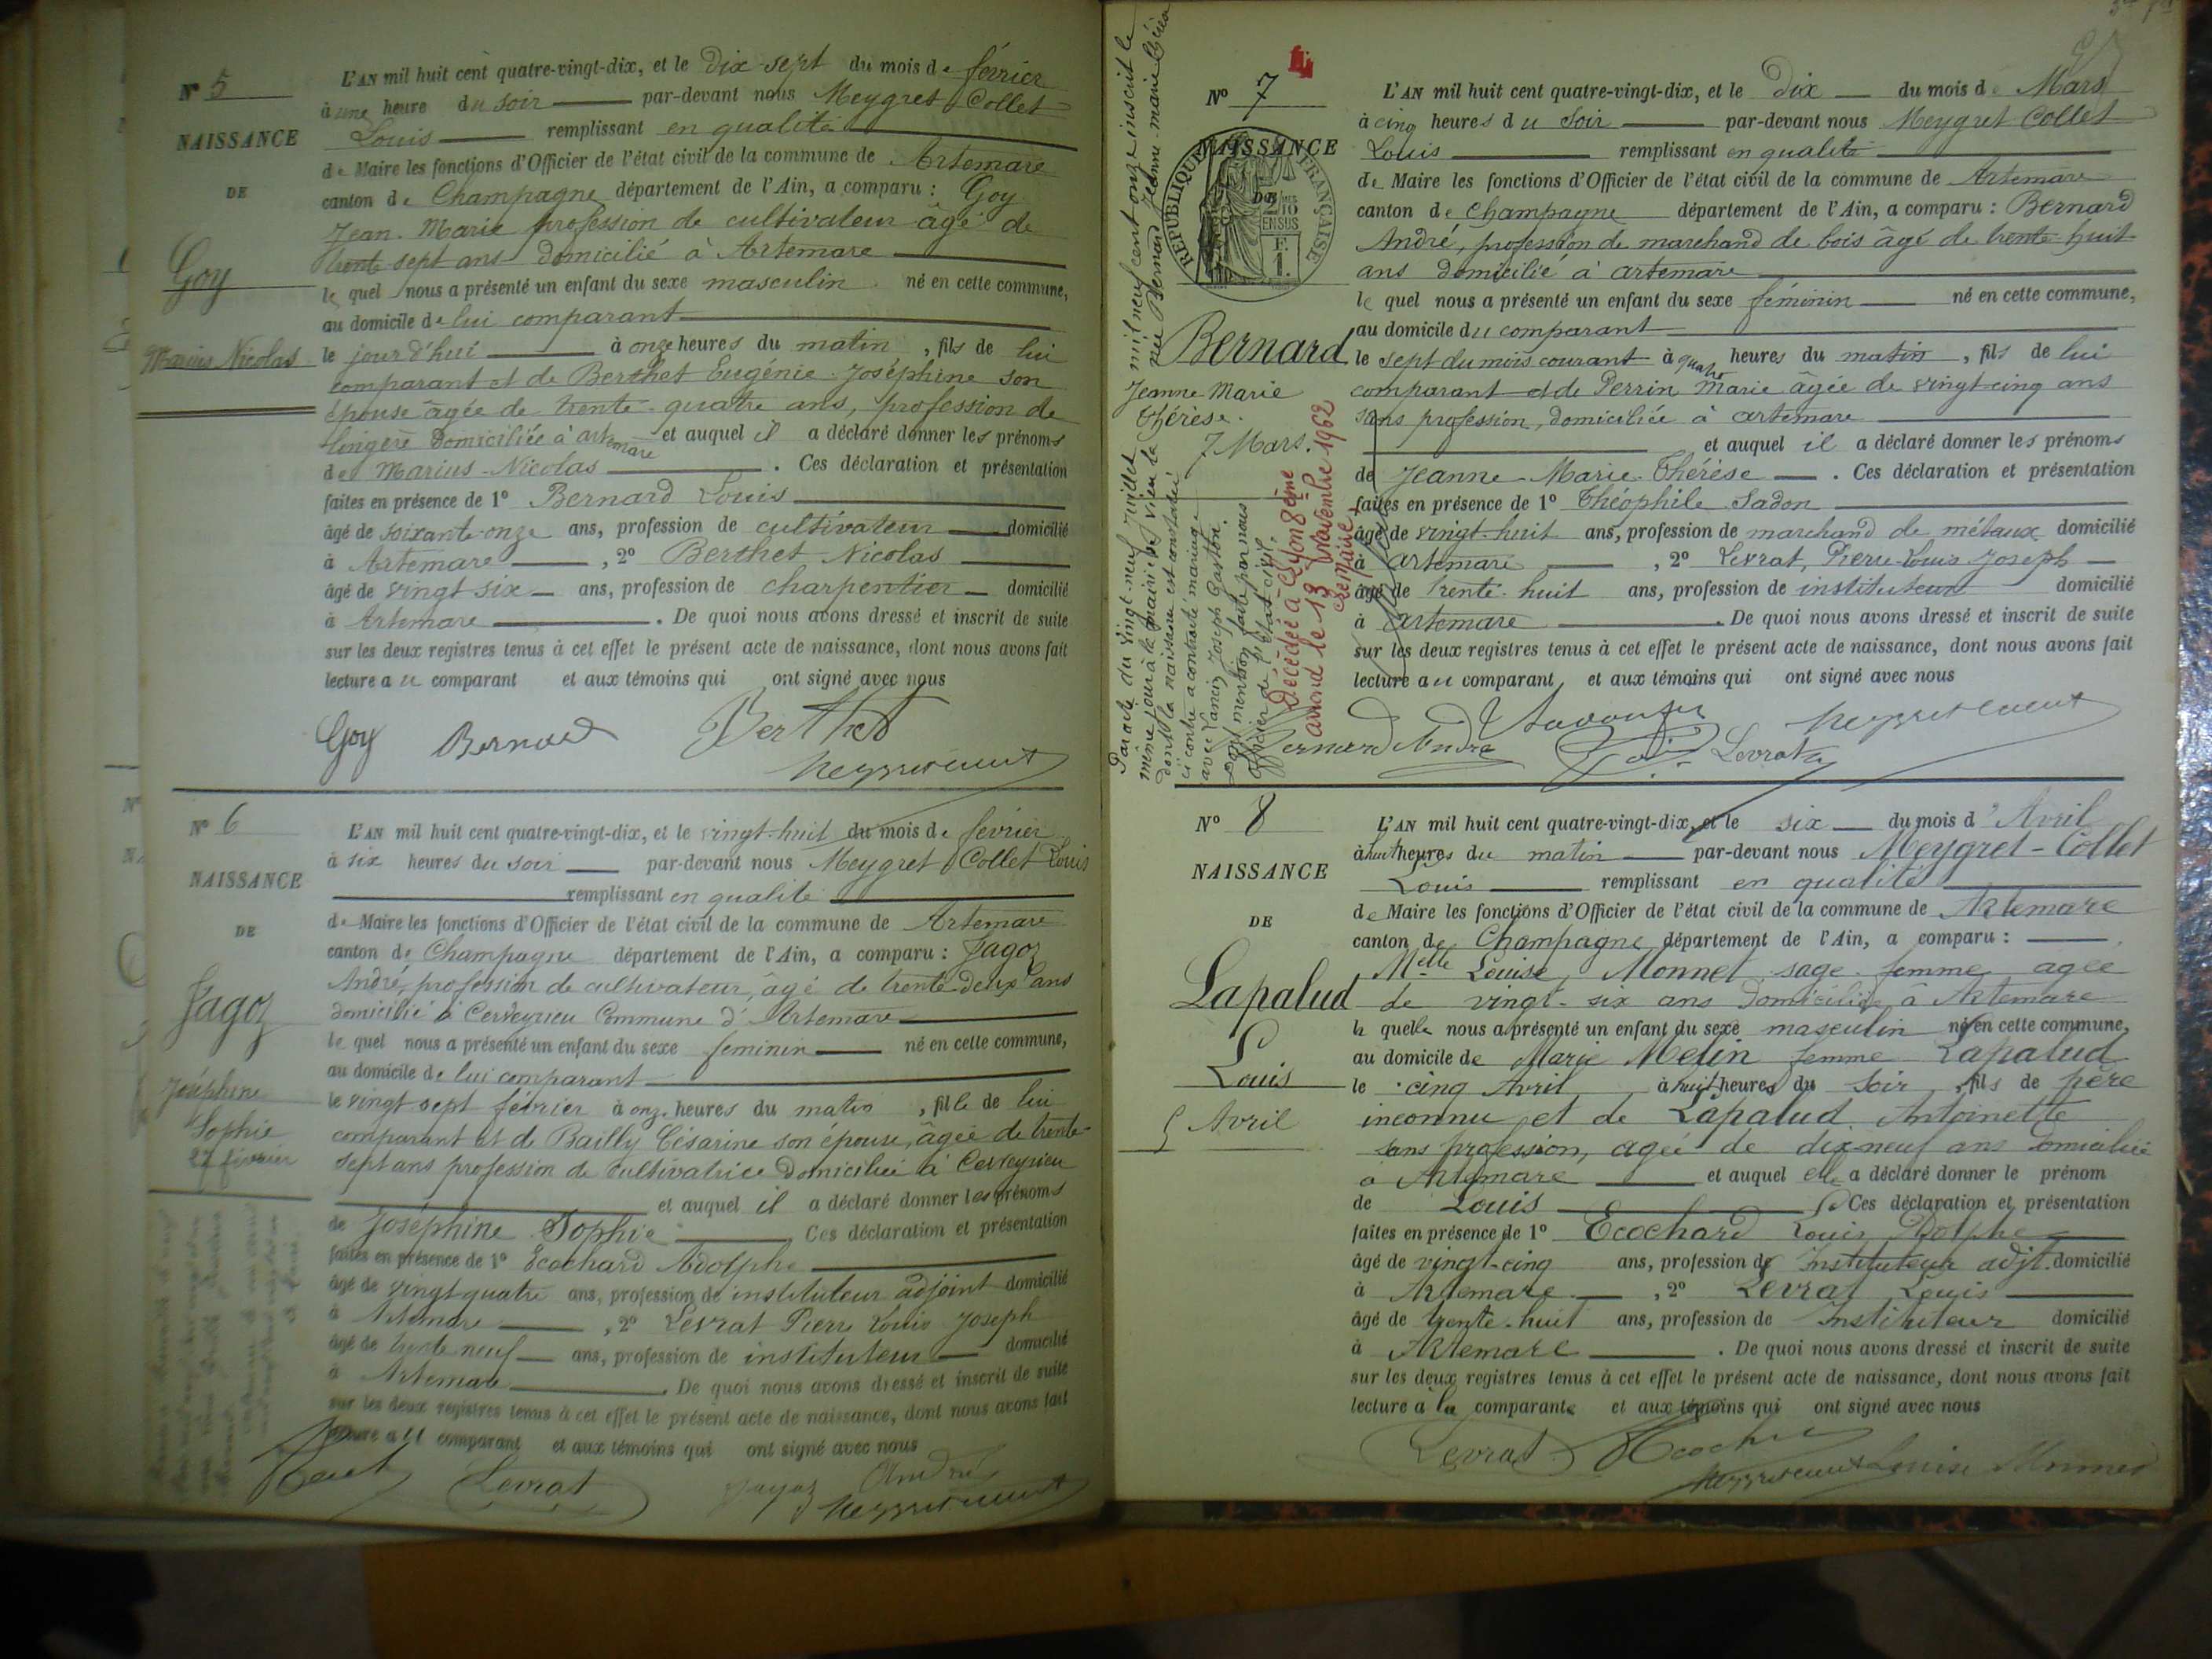 N° 5
NAISSANCE
DE
Goy
Marius Nicolas
L'AN mil huit cent quatre-vingt-dix, et le dix-sept du mois de février
à une heure du soir par-devant nous Meygret Collet
Louis remplissant en qualité
de Maire les fonctions d'Officier de l'état civil de la commune de Artemare
canton de Champagne département de l'Ain, a comparu : Goy
Jean-Marie profession de cultivateur âgé de
trente-sept ans domicilié à Artemare
le quel nous a présenté un enfant du sexe masculin né en cette commune,
au domicile de lui comparant
le jour d'hui à onze heures du matin, fils de lui
comparant et de Berthet Eugénie Joséphine son
épouse âgée de trente-quatre ans, profession de
lingère domiciliée à artemare et auquel il a déclaré donner les prénoms
de Marius-Nicolas. Ces déclaration et présentation
faites en présence de 1° Bernard Louis
âgé de soixante-onze ans, profession de cultivateur domicilié
à Artemare, 2° Berthet Nicolas
âgé de vingt six ans, profession de charpentier domicilié
à Artemare. De quoi nous avons dressé et inscrit de suite
sur les deux registres tenus à cet effet le présent acte de naissance, dont nous avons fait
lecture au comparant et aux témoins qui ont signé avec nous
Goy Bernard Berthet
N° 6
NAISSANCE
DE
Jagoz
Joséphine
Sophie
27 février
L'AN mil huit cent quatre-vingt-dix, et le vingt-huit du mois de février
à six heures du soir par-devant nous Meygret Collet Louis
remplissant en qualité
de Maire les fonctions d'Officier de l'état civil de la commune de Artemare
canton de Champagne département de l'Ain, a comparu : Jagoz
André, profession de cultivateur, âgé de trente-deux ans
domicilié à Cerveyrieu Commune d'Artemare
le quel nous a présenté un enfant du sexe féminin né en cette commune,
au domicile de lui comparant
le vingt-sept février à onze heures du matin, fille de lui
comparant et de Bailly Césarine son épouse, âgée de trente-
sept ans profession de cultivatrice domiciliée à Cerveyrieu
et auquel il a déclaré donner les prénoms
de Joséphine Sophie Ces déclaration et présentation
faites en présence de 1° Ecochard Adolphe
âgé de vingt-quatre ans, profession de instituteur adjoint domicilié
à Artemare, 2° Levrat Pierre Louis Joseph
âgé de trente neuf ans, profession de instituteur domicilié
à Artemare. De quoi nous avons dressé et inscrit de suite
sur les deux registres tenus à cet effet le présent acte de naissance, dont nous avons fait
lecture au comparant et aux témoins qui ont signé avec nous
Levrat Jagoz André
N° 7
NAISSANCE
De
RÉPUBLIQUE FRANÇAISE
Bernard
Jeanne Marie
Thérèse.
7 Mars.
Par acte du vingt-neuf juillet mil neuf cent onze inscrit le
même jour à la mairie de
dont la naissance est constatée
ci contre a contracté mariage
avec Joseph Gaston.
Dont mention faite par nous
officier de l'état civil.
Décédée à Lyon 8ème
arrond le 13 Novembre 1962
Le Maire
L'AN mil huit cent quatre-vingt-dix, et le dix du mois de Mars
à cinq heures du soir par-devant nous Meygret Collet
Louis remplissant en qualité
de Maire les fonctions d'Officier de l'état civil de la commune de Artemare
canton de Champagne département de l'Ain, a comparu : Bernard
André, profession de marchand de bois âgé de trente-huit
ans domicilié à artemare
le quel nous a présenté un enfant du sexe féminin né en cette commune,
au domicile du comparant
le sept du mois courant à quatre heures du matin, fils de lui
comparant et de Perrin Marie âgée de vingt-cinq ans
sans profession, domiciliée à artemare
et auquel il a déclaré donner les prénoms
de Jeanne-Marie-Thérèse. Ces déclaration et présentation
faites en présence de 1° Théophile Sadon
âgé de vingt-huit ans, profession de marchand de métaux domicilié
à artemare, 2° Levrat, Pierre-Louis Joseph
âgé de trente-huit ans, profession de instituteur domicilié
à artemare. De quoi nous avons dressé et inscrit de suite
sur les deux registres tenus à cet effet le présent acte de naissance, dont nous avons fait
lecture au comparant, et aux témoins qui ont signé avec nous
Bernard André Levrat
N° 8
NAISSANCE
DE
Lapalud
Louis
5 Avril
L'AN mil huit cent quatre-vingt-dix, et le six du mois d'Avril
à huit heures du matin par-devant nous Meygret-Collet
Louis remplissant en qualité
de Maire les fonctions d'Officier de l'état civil de la commune de Artemare
canton de Champagne département de l'Ain, a comparu :
Melle Louise Monnet sage-femme agée
de vingt-six ans domiciliée à Artemare
la quelle nous a présenté un enfant du sexe masculin né en cette commune,
au domicile de Marie Melin femme Lapalud
le cinq Avril à huit heures du soir, fils de père
inconnu et de Lapalud Antoinette
sans profession, agée de dix-neuf ans domiciliée
à Artemare et auquel elle a déclaré donner le prénom
de Louis Ces déclaration et présentation
faites en présence de 1° Ecochard Louis Adolphe
âgé de vingt-cinq ans, profession de Instituteur adjt. domicilié
à Artemare, 2° Levrat Louis
âgé de trente-huit ans, profession de Instituteur domicilié
à Artemare. De quoi nous avons dressé et inscrit de suite
sur les deux registres tenus à cet effet le présent acte de naissance, dont nous avons fait
lecture à la comparante et aux témoins qui ont signé avec nous
Levrat Louise Monnet